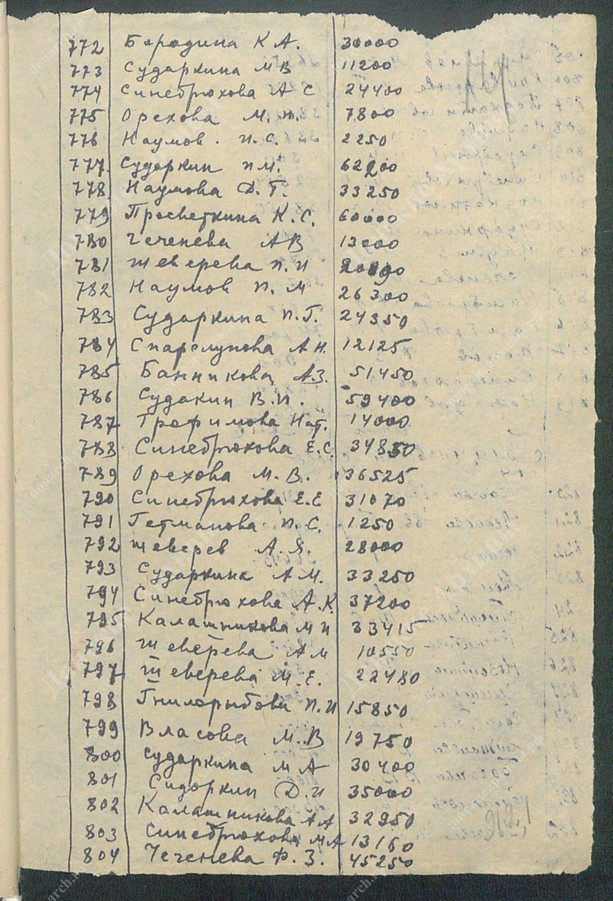 772 Бородина К А. 30000
773 Сударкина М В 11200
774 Синебрюхова А С 24400
775 Орехова М. П. 7800
776 Наумов. П. С. 2250
777 Сударкин П.М. 62200
778 Наумова Д. Г. 33250
779 Просветкина К. С. 60000
780 Чеченева А В 13000
781 Шеверева П. И
782 Наумов П. М 26300
783 Сударкина П. Г. 24350
784 А. Н. 12125
785 Банникова А З. 51450
786 Судакин В. П. 59400
787 Трофимова Нат. 14000
788 Синебрюхова Е. С. 34850
789 Орехова М. В. 36525
790 Синебрюхова Е. Е 31070
791 Гетманова П. С. 1250
792 Шеверев А. Я. 28000
793 Сударкина А М. 33250
794 Синебрюхова А. К 37200
795 Калашникова М П 33415
796 Шеверева А М 10550
797 Шеверева М. Е. 22480
798 Гнилорыбова П. И 15850
799 Власова М. В 19750
800 Сударкина М А 30400
801 Сидоркин Д. И 35000
802 Калашникова А А 32950
803 Синебрюхова М А 13160
804 Чеченева Ф. З. 45250